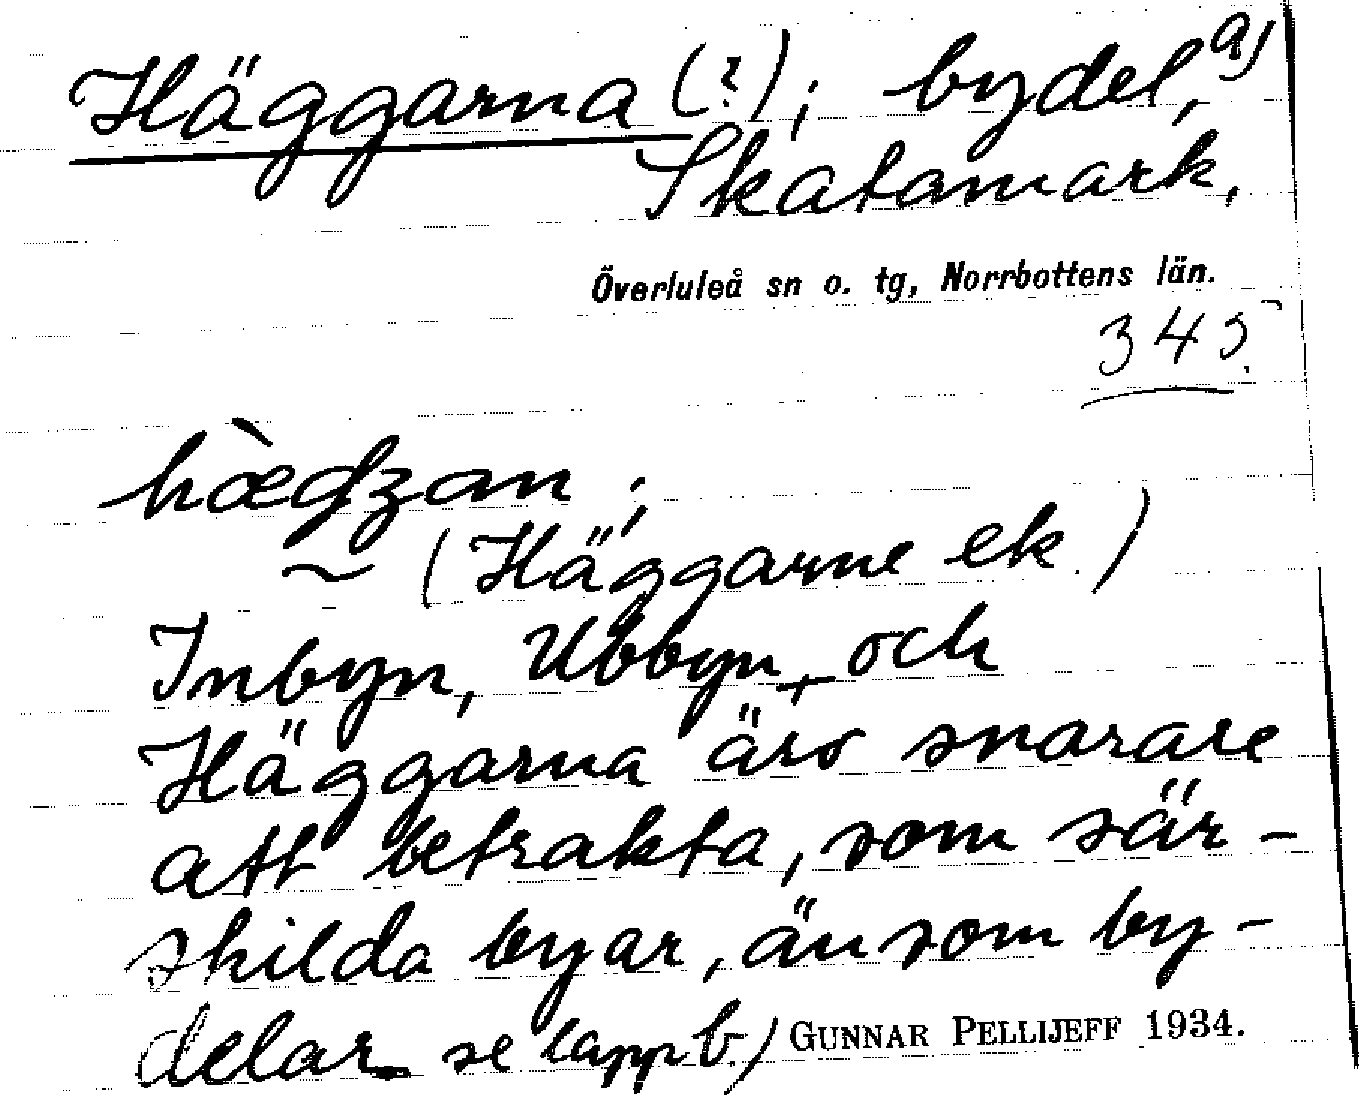 Häggarna (?); bydel, a)
Skatamark,
Överluleå sn o. tg, Norrbottens län.
345.
hæ̀gʒan;
~ (Häggarne ek.)
Inbyn, Ubbyn, och
Häggarna äro snarare
att betrakta, som sär-
skilda byar, än som by-
delar. se lapp b) GUNNAR PELLIJEFF 1934.